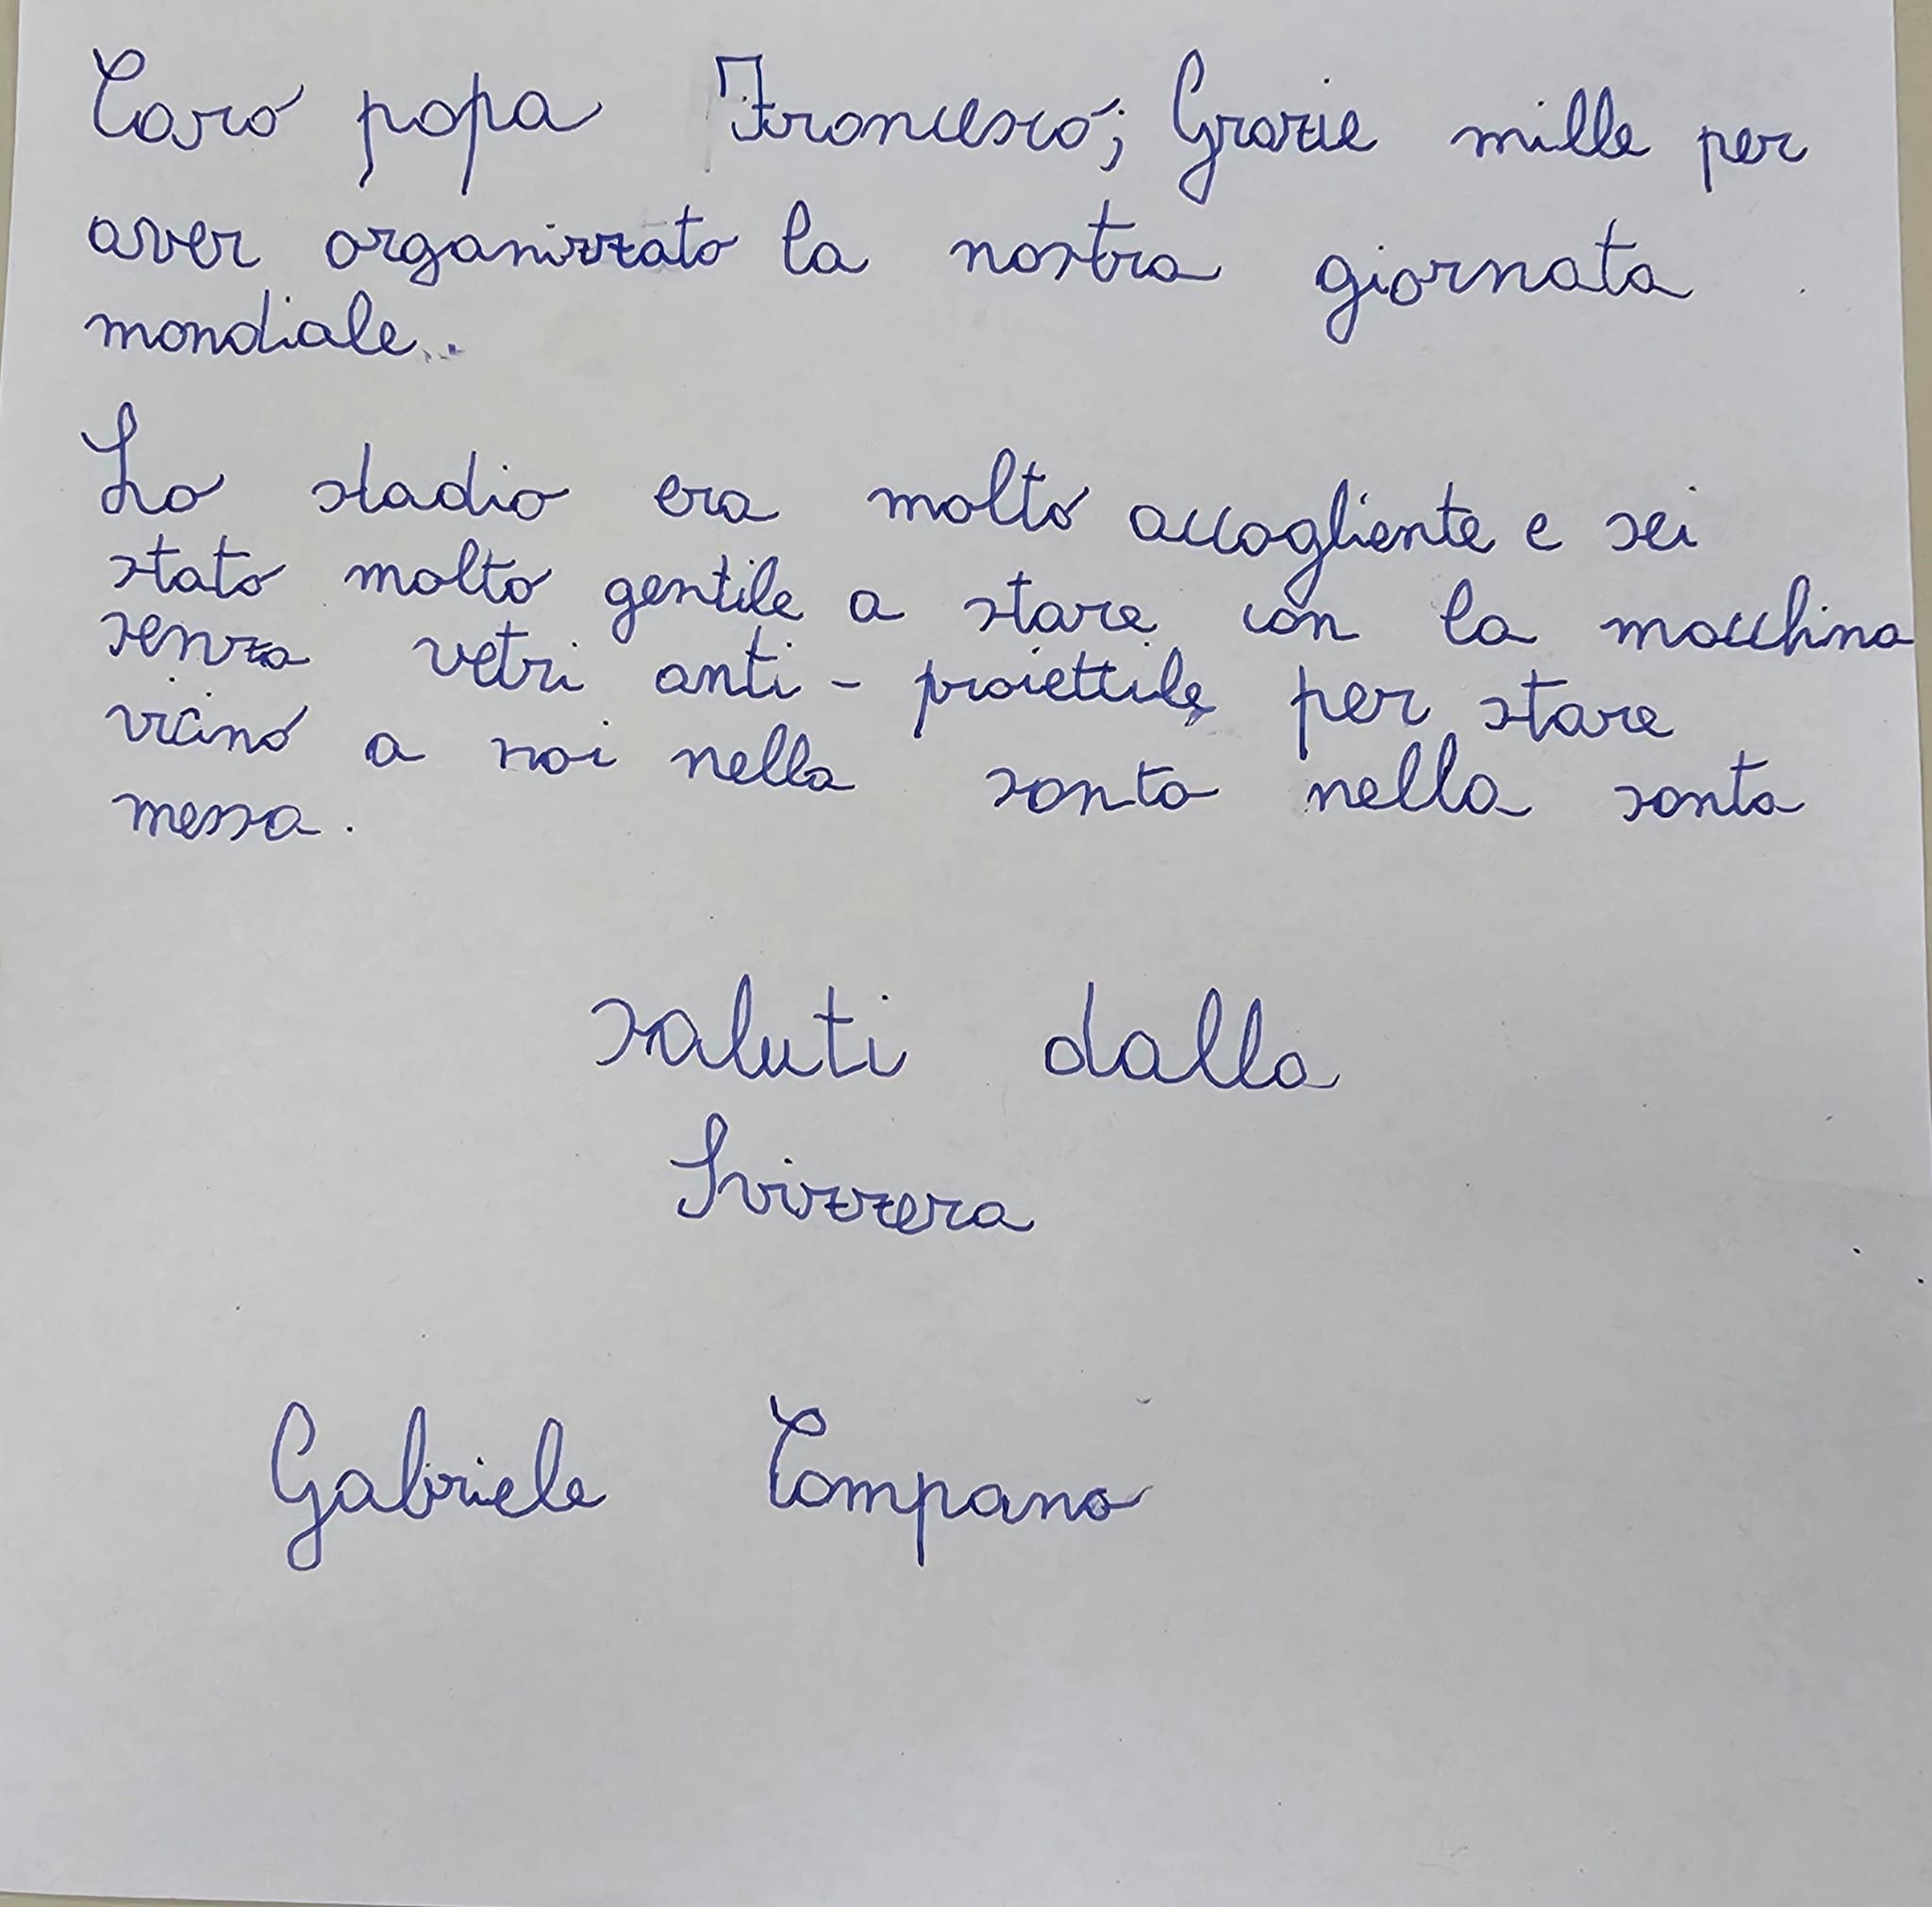 Caro papa Francesco; Grazie mille per
aver organizzato la nostra giornata
mondiale..
Lo stadio era molto accogliente e sei
stato molto gentile a stare con la macchina
senza vetri anti-proiettile per stare
vicino a noi nella santa nella santa
messa.
saluti dalla
Svizzera
Gabriele Campano